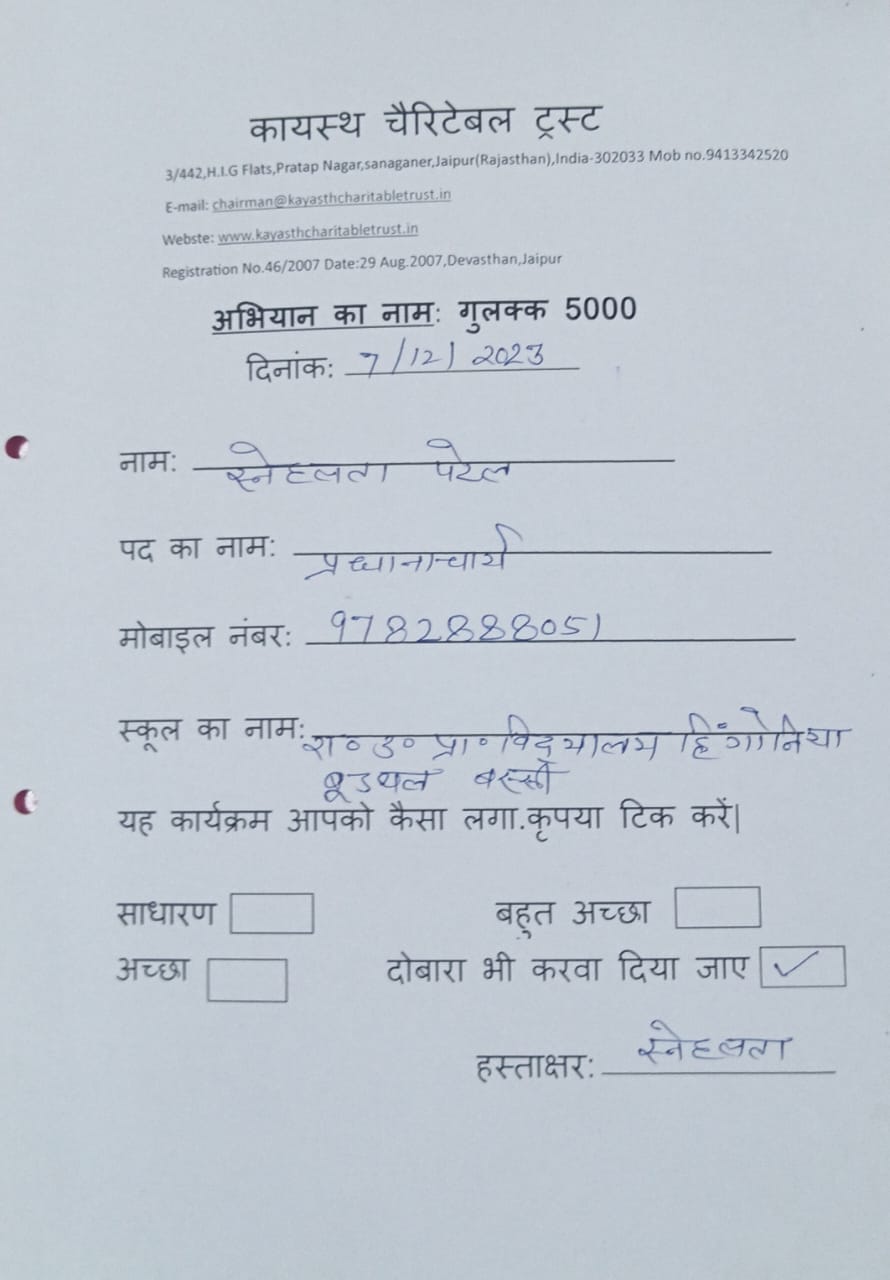 कायस्थ चैरिटेबल ट्रस्ट
3/442,H.I.G Flats,Pratap Nagar,sanaganer,Jaipur(Rajasthan),India-302033 Mob no.9413342520
E-mail: chairman@kayasthcharitabletrust.in
Webste: www.kayasthcharitabletrust.in
Registration No.46/2007 Date:29 Aug.2007,Devasthan,Jaipur
अभियान का नाम: गुलक्क 5000
दिनांक: 7/12/2023
नाम: स्नेहलता पटेल
पद का नाम: प्रधानाचार्य
मोबाइल नंबर: 9782888051
स्कूल का नाम: रा० उ० प्रा० विद्यालय हिंगोनिया
बूडथल बस्सी
यह कार्यक्रम आपको कैसा लगा.कृपया टिक करें|
साधारण बहुत अच्छा
अच्छा दोबारा भी करवा दिया जाए ✓
हस्ताक्षर: स्नेहलता